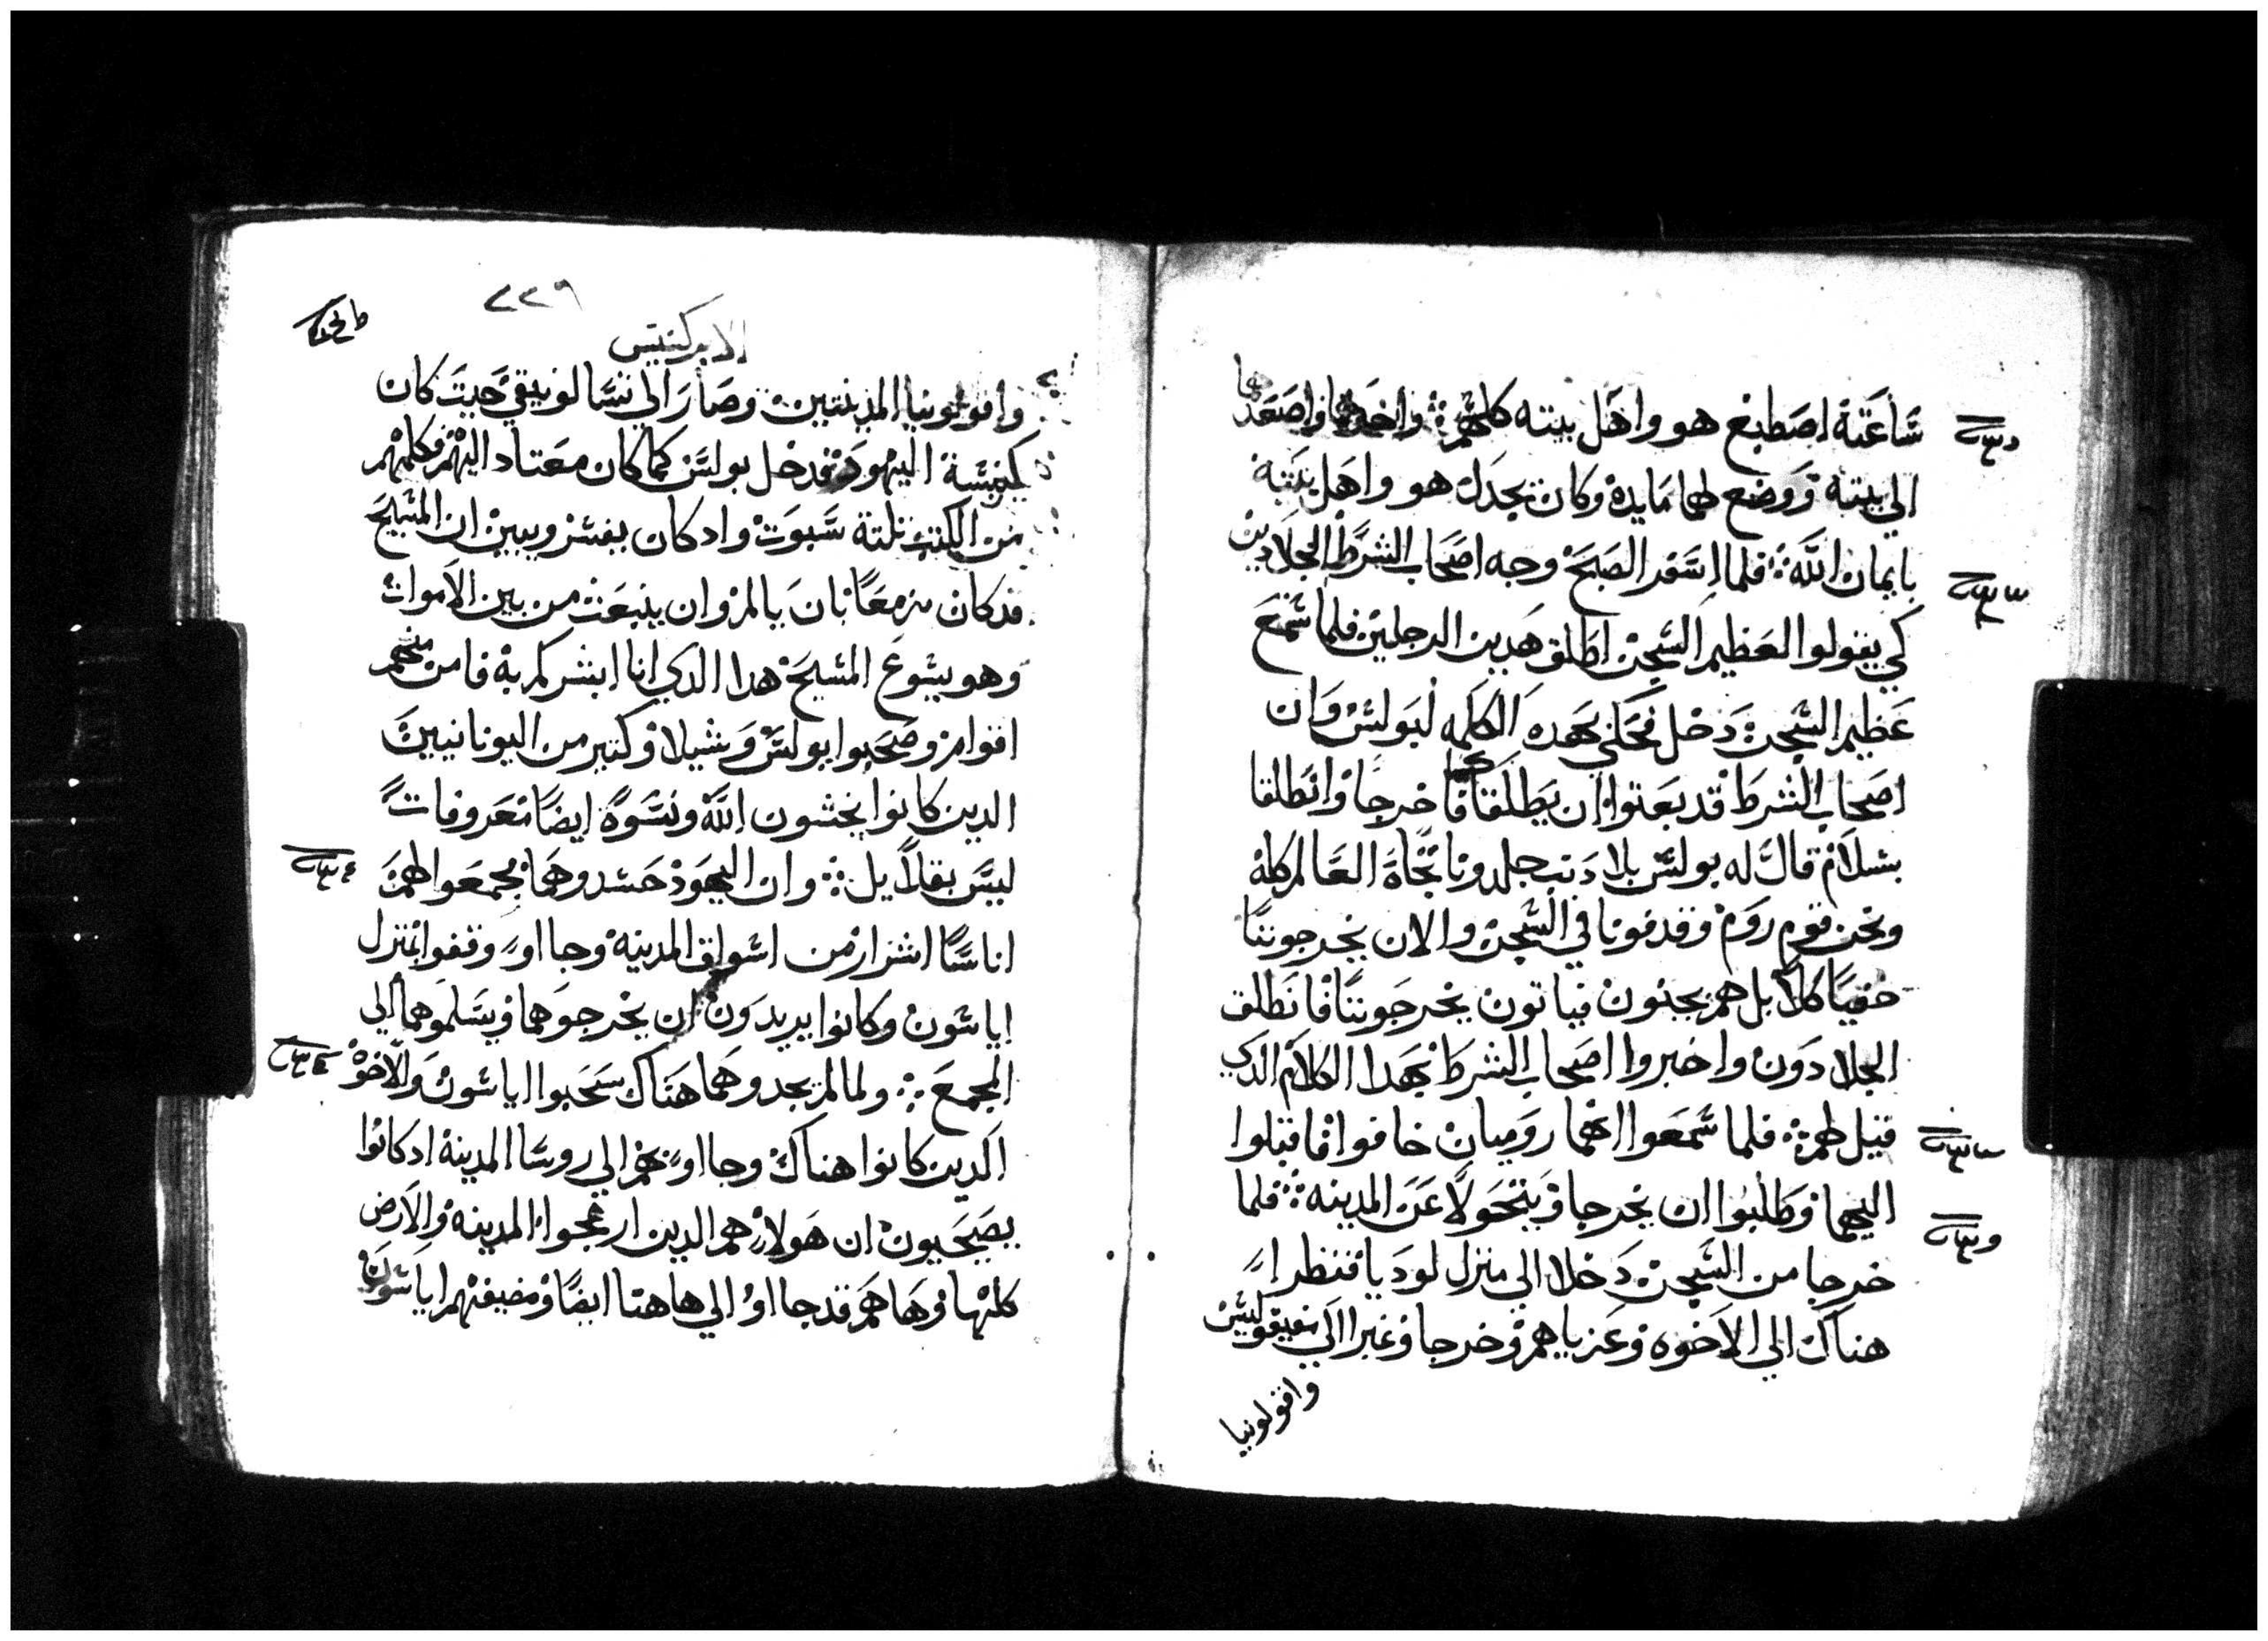 ساعته اصطبغ هو واهل بيته كلهم واخدهما واصعدهما
الي بيته ووضع لهما مايده وكان يجدل هو واهل بيته
بايمان الله فلما اسفر الصبح وجه اصحاب الشرط الجلادين
كي يقولوا لعظيم السجن اطلق هدين الرجلين فلما سمع
عظيم السجن دخل فحكي بهده الكلمه لبولس وان
اصحاب الشرط قد بعتوا ان يطلقاكما فاخرجا وانطلقا
بسلام قال له بولس بلا دنب جلدونا تجاه العالم كله
ونحن قوم روم وقدفونا في السجن والان يخرجوننا
خفيا كلا بل هم يجيون فياتون يخرجوننا فانطلق
الجلادون واخبروا اصحاب الشرط بهدا الكلام الدي
قيل لهم فلما سمعوا انهما روميان خافوا فاقبلوا
اليهما وطلبوا ان يخرجا ويتحولا عن المدينه فلما
خرجا من السجن دخلا الي منزل لوديا فنظرا
هناك الي الاخوه وعزياهم وخرجا وعبرا الي
واقولونيا
٢٢٩
الابركسيس
واقولونيا المدينتين وصارا الي تسالونيقي حيت كان
كنيسة اليهود فدخل بولس كما كان معتاد اليهم فكلمهم
من الكتب تلتة سبوت واد كان يفسر ويبين ان المسيح
قد كان مزمعا بان يالم وان ينبعث من بين الاموات
وهو يسوع المسيح هدا الدي انا ابشركم به فامن منهم
اقوام وصحبوا بولس وسيلا وكتير من اليونانيين
الدين كانوا يخشون الله ونسوة ايضا معروفات
ليس بقلايل وان اليهود حسدوهما فجمعوا لهم
اناسا اشرار من اسواق المدينه وجااوا وقفوا بمنزل
اياسون وكانوا يريدون ان يخرجوهما ويسلموهما الي
المجمع ولما لم يجدوهما هناك سحبوا اياسون والاخوة
الدين كانوا هناك وجااوا بهم الي روسا المدينة اد كانوا
يصيحون ان هولا هم الدين ارعجوا المدينه والارض
كلها وها هم قد جااوا الي هاهنا ايضا ومضيفهم اياسون